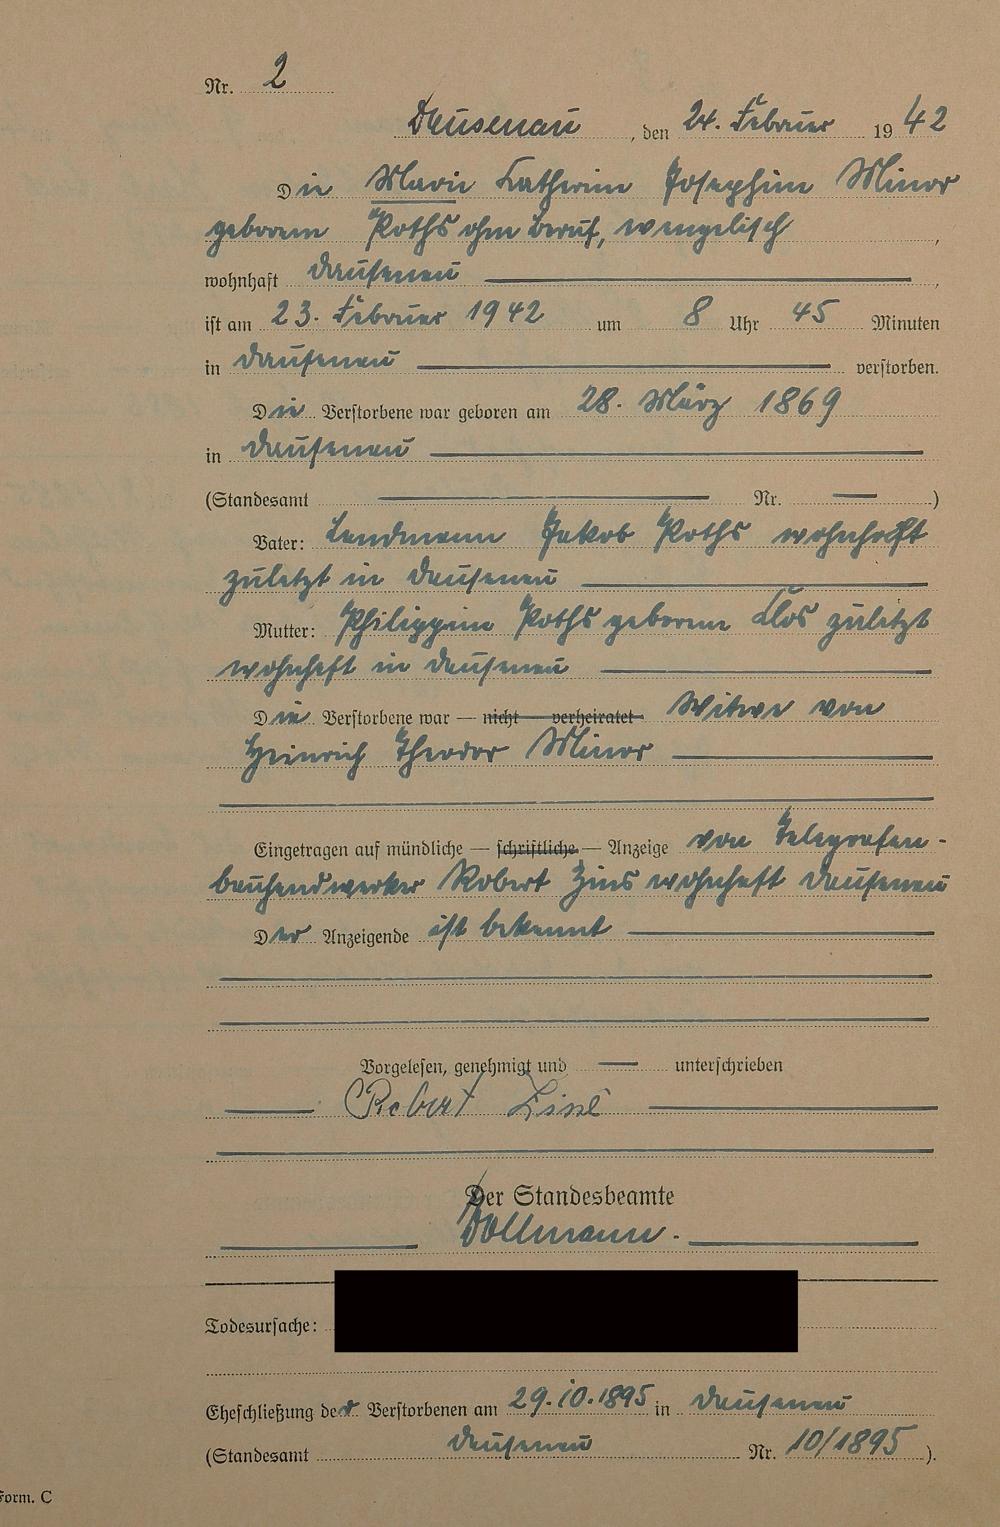 Nr. 2
Dausenau, den 24. Februar 1942
Die Marie Katharine Josephine Minor
geborene Roths ohne Beruf, evangelisch,
wohnhaft Dausenau,
ist am 23. Februar 1942 um 8 Uhr 45 Minuten
in Dausenau verstorben.
Die Verstorbene war geboren am 28. März 1869
in Dausenau
(Standesamt Nr. )
Vater: Landmann Jakob Roths wohnhaft
zuletzt in Dausenau
Mutter: Philippine Roths geborene Clos zuletzt
wohnhaft in Dausenau
Die Verstorbene war — nicht — verheiratet Witwe von
Heinrich Theodor Minor
Eingetragen auf mündliche — schriftliche — Anzeige von Telegrafen-
bauhandwerker Robert Zins wohnhaft Dausenau
Der Anzeigende ist bekannt
Vorgelesen, genehmigt und — unterschrieben
Robert Zins
Der Standesbeamte
Dollmann.
Todesursache:
Eheschließung der Verstorbenen am 29.10.1895 in Dausenau
(Standesamt Dausenau Nr. 10/1895).
Form. C